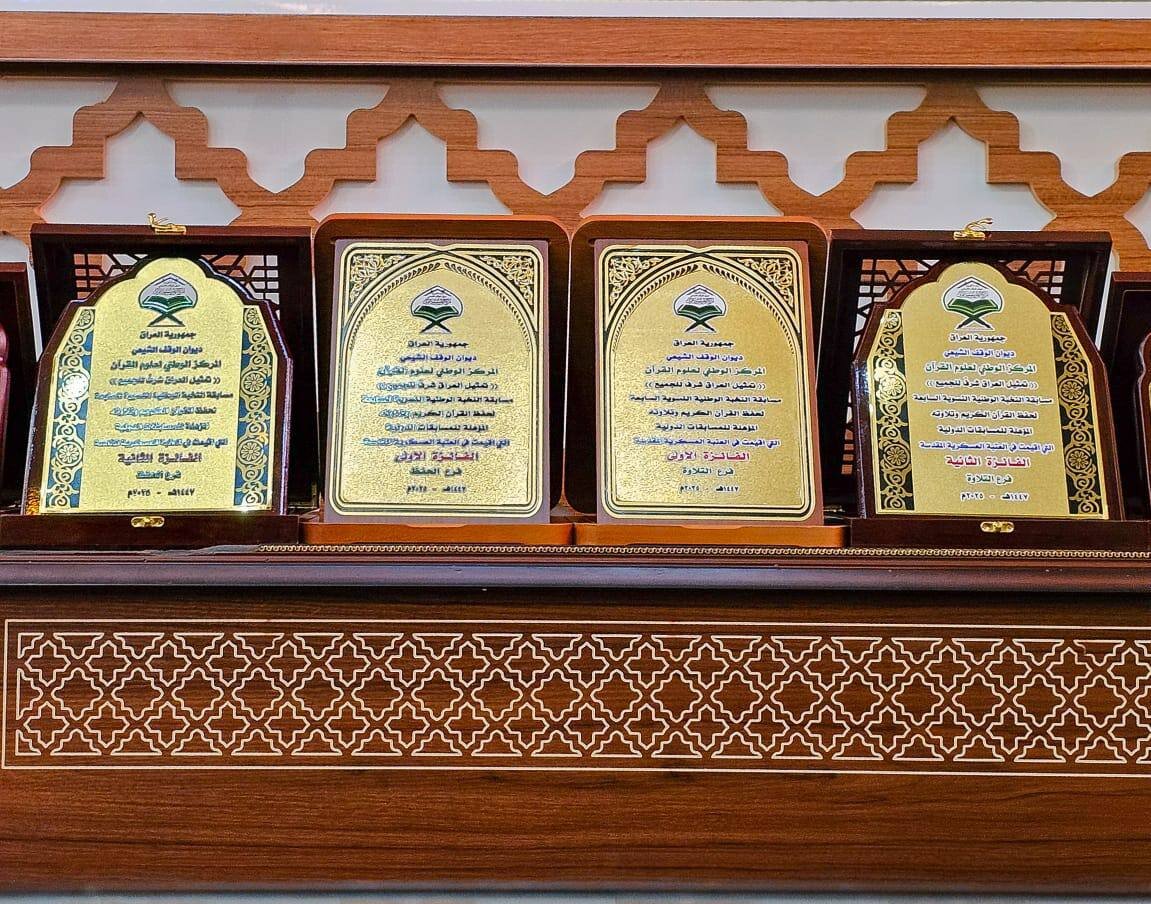 جمهورية العراق
ديوان الوقف الشيعي
المركز الوطني لعلوم القرآن
(( تمثيل العراق شرف للجميع ))
مسابقة النخبة الوطنية النسوية السابعة
لحفظ القرآن الكريم وتلاوته
المؤهلة للمسابقات الدولية
التي اقيمت في العتبة العسكرية المقدسة
الفائزة الاولى
فرع التلاوة
١٤٤٧هـ - ٢٠٢٥م
جمهورية العراق
ديوان الوقف الشيعي
المركز الوطني لعلوم القرآن
(( تمثيل العراق شرف للجميع ))
مسابقة النخبة الوطنية النسوية السابعة
لحفظ القرآن الكريم وتلاوته
المؤهلة للمسابقات الدولية
التي اقيمت في العتبة العسكرية المقدسة
الفائزة الثانية
فرع التلاوة
١٤٤٧هـ - ٢٠٢٥م
جمهورية العراق
ديوان الوقف الشيعي
المركز الوطني لعلوم القرآن
(( تمثيل العراق شرف للجميع ))
مسابقة النخبة الوطنية النسوية السابعة
لحفظ القرآن الكريم وتلاوته
المؤهلة للمسابقات الدولية
التي اقيمت في العتبة العسكرية المقدسة
الفائزة الاولى
فرع الحفظ
١٤٤٧هـ - ٢٠٢٥م
جمهورية العراق
ديوان الوقف الشيعي
المركز الوطني لعلوم القرآن
(( تمثيل العراق شرف للجميع ))
مسابقة النخبة الوطنية النسوية السابعة
لحفظ القرآن الكريم وتلاوته
المؤهلة للمسابقات الدولية
التي اقيمت في العتبة العسكرية المقدسة
الفائزة الثانية
فرع الحفظ
١٤٤٧هـ - ٢٠٢٥م